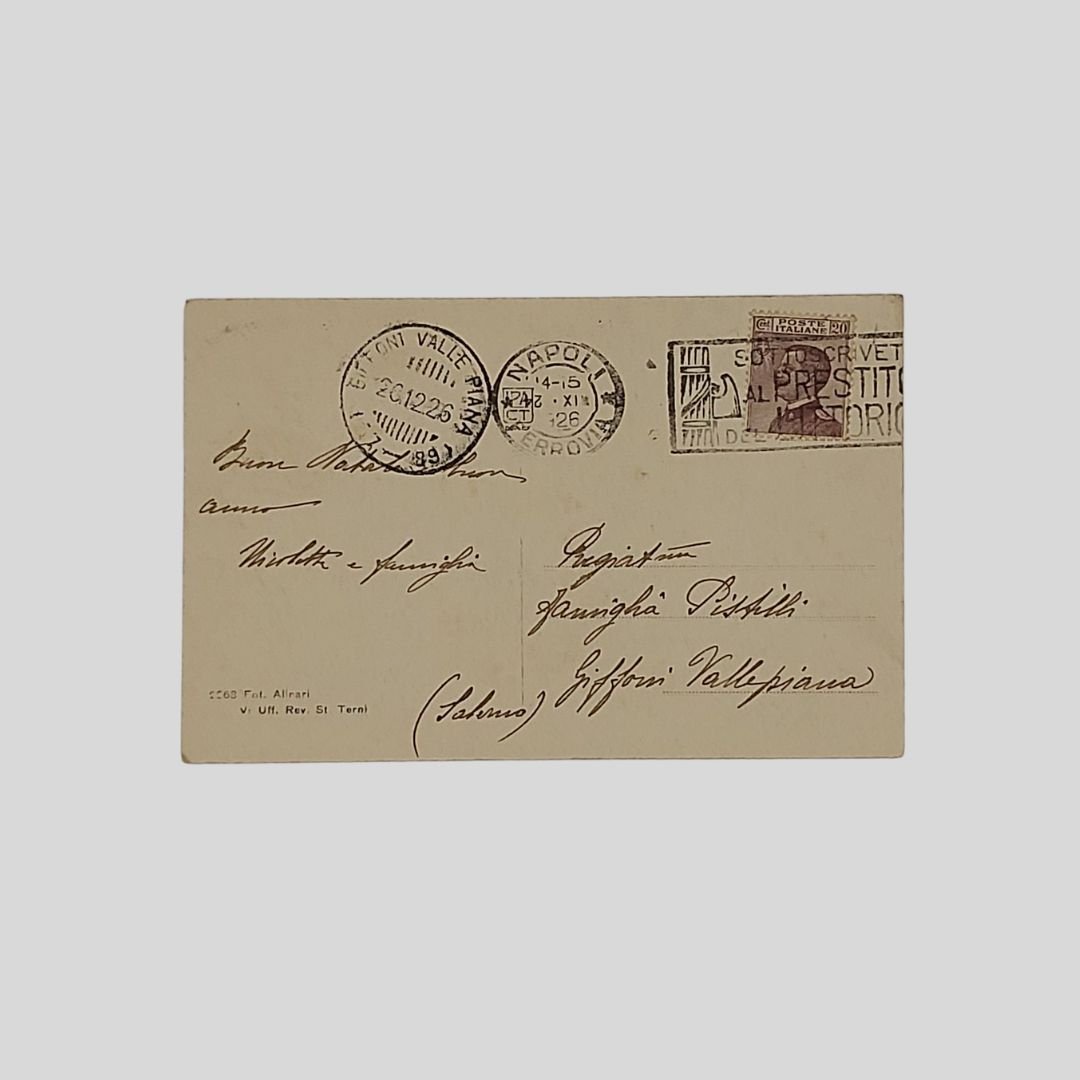 GIFFONI VALLE PIANA
26.12.26
89
NAPOLI
14-15
24 · XII
1926
PACT
FERROVIA
Cent POSTE ITALIANE 20
SOTTOSCRIVET
AL PRESTITO
DEL LITTORIO
Buon Natale buon
anno
Nicoletta e famiglia
famiglia Pistilli
Giffoni Vallepiana
(Salerno)
2268 Fot. Alinari
V: Uff. Rev. St. Terni